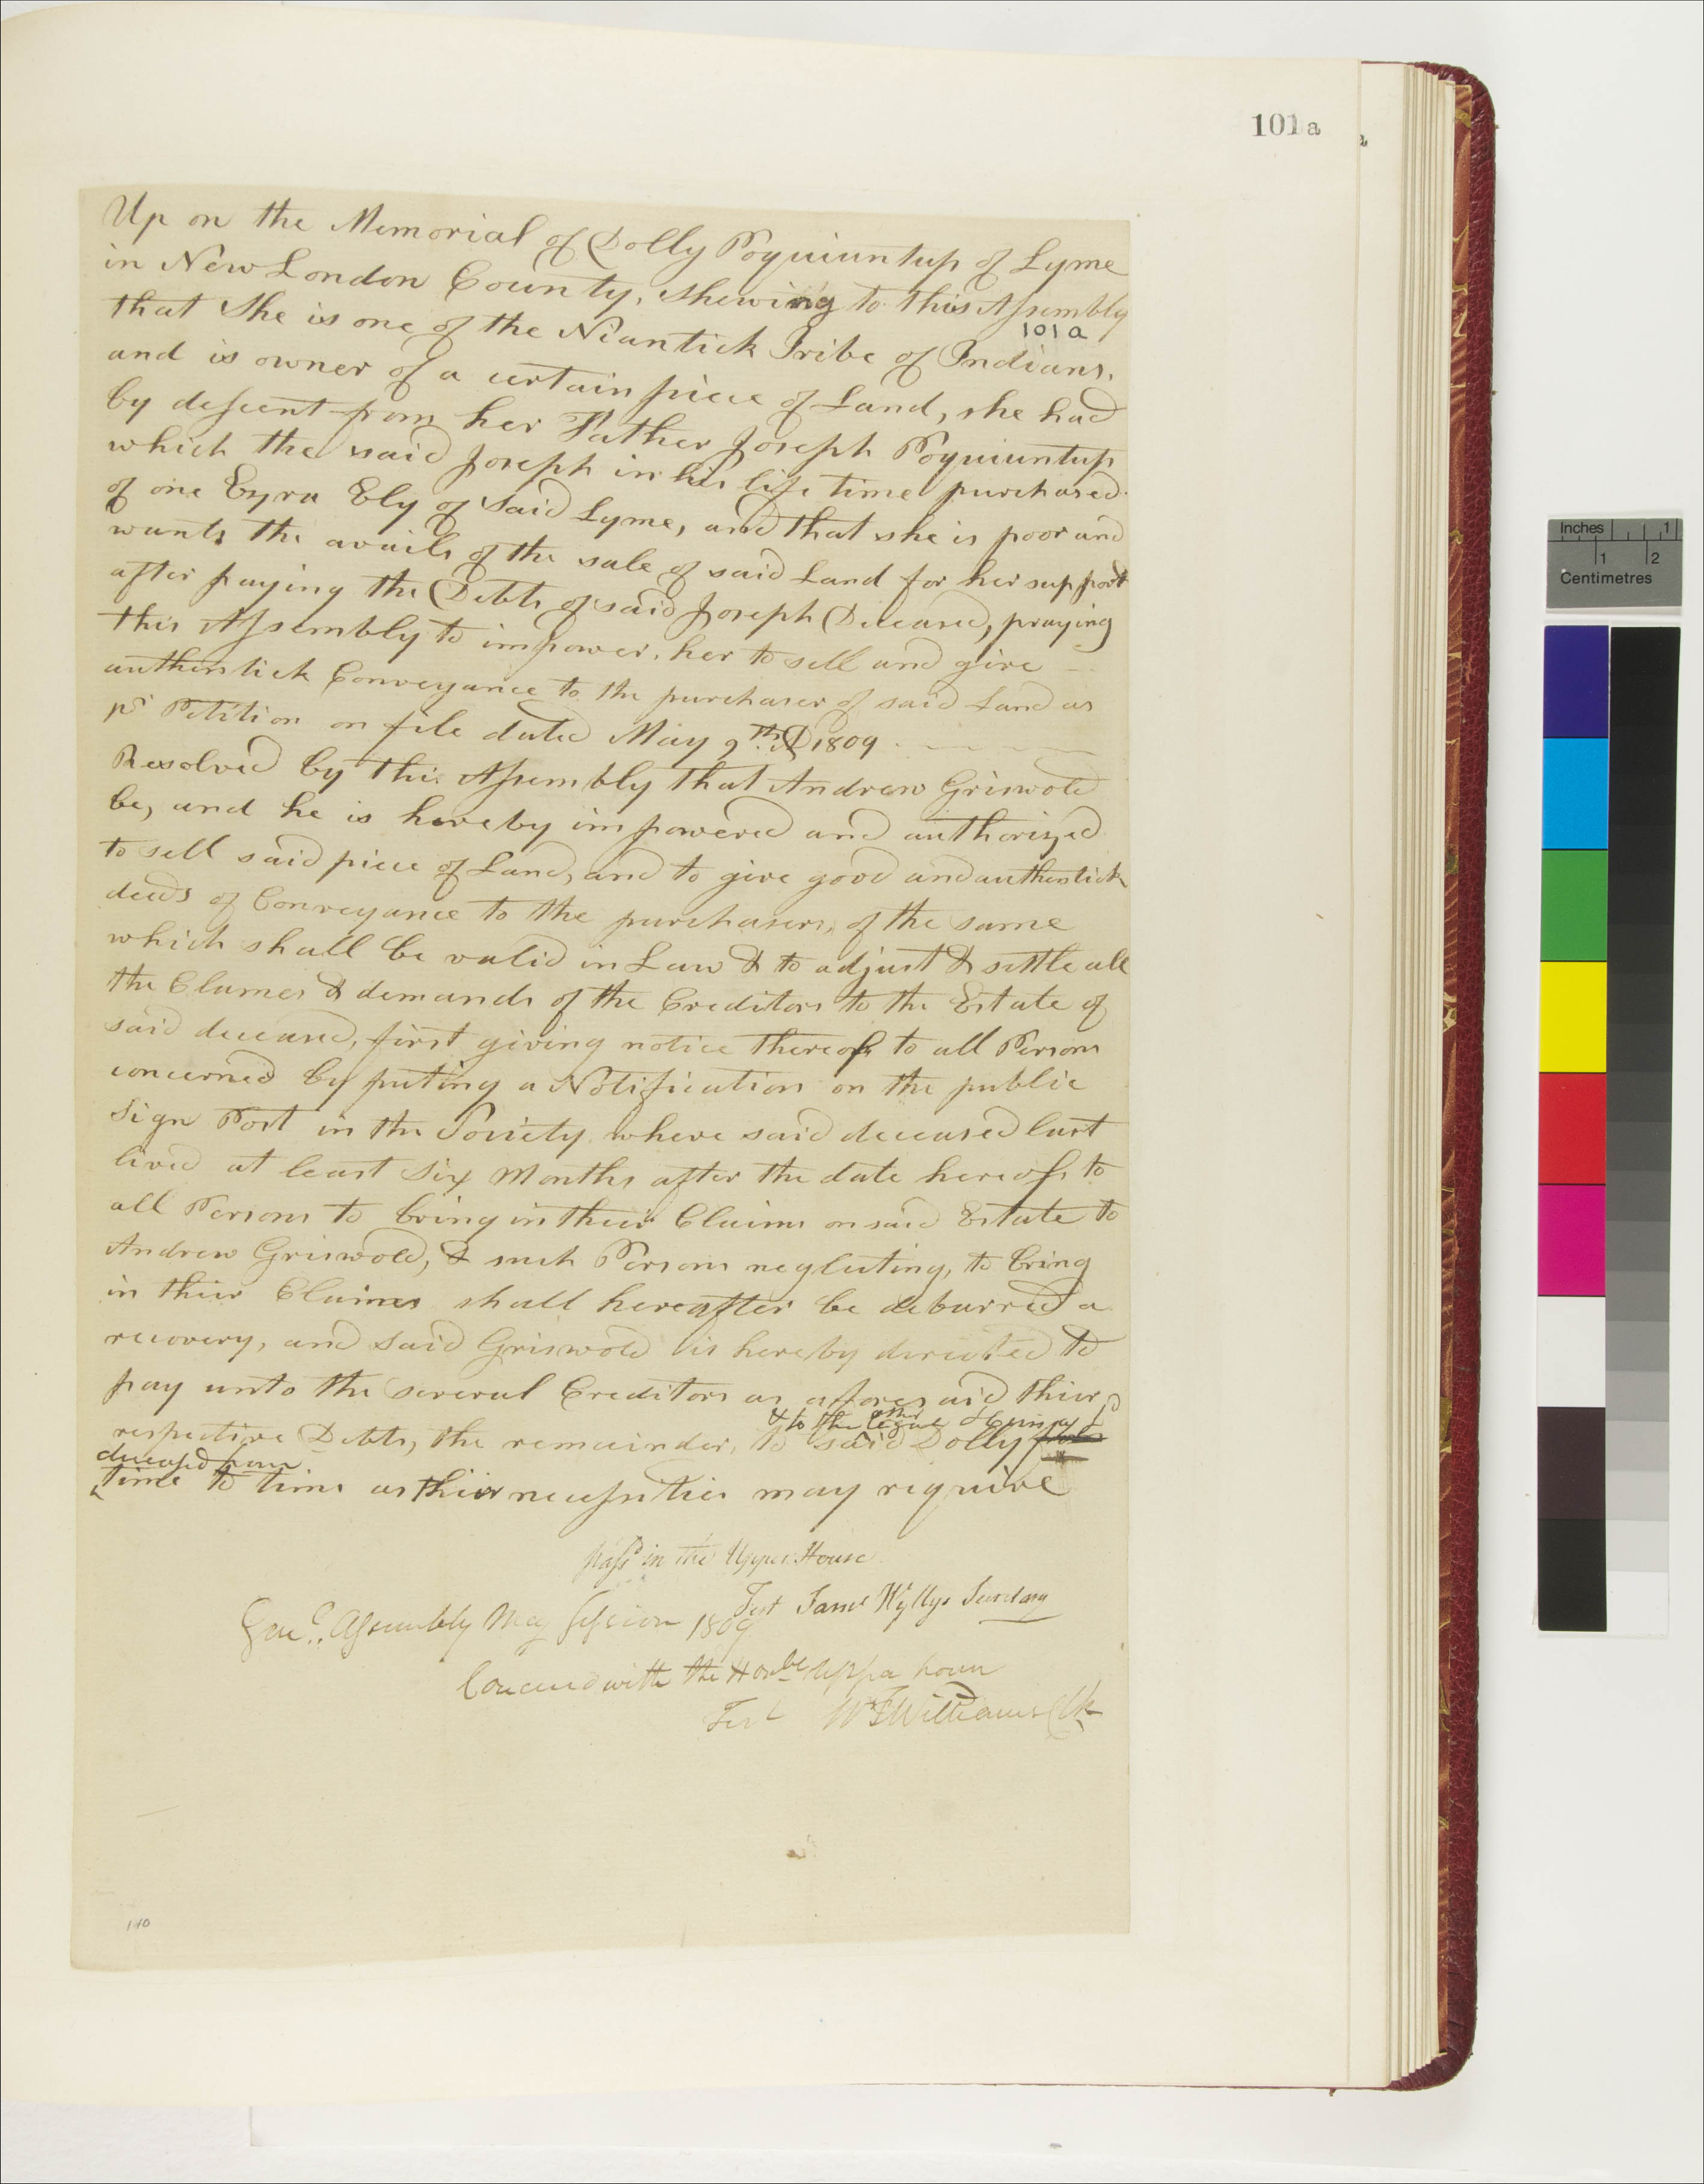 101a
Up on the Memorial of Dolly Poquiuntup of Lyme
in New London County, shewing to this Assembly
101 a
that She is one of the Niantick Tribe of Indians,
and is owner of a certain piece of Land, she had
by descent from her Father Joseph Poquiuntup
which the said Joseph in his life time purchased
of one Ezra Ely of Said Lyme, and that she is poor and
wants the avails of the sale of said Land for her support
after paying the Debts of said Joseph Deceased, praying
this Assembly to impower her to sell and give
authentick Conveyance to the purchaser of said Land as
pr Petition on file dated May 9th AD 1809
Resolved by this Assembly that Andrew Griswold
be, and he is hereby impowered and authorized
to sell said piece of Land, and to give good and authentick
deeds of Conveyance to the purchasers, of the same
which shall be valid in Law & to adjust & settle all
the Clames & demands of the Creditors to the Estate of
said deceased, first giving notice thereof to all Persons
concerned by puting a Notification on the public
Sign Post in the Society where said deceased last
lived at least Six Months after the date hereof to
all Persons to bring in their Claims on said Estate to
Andrew Griswold, & such Persons neglecting, to bring
in thier Claims shall hereafter be debarred a
recovery, and said Griswold is hereby directed to
pay unto the several Creditors as aforesaid thier
& to the other legal heirs of sd
respective Debts, the remainder, to said Dolly from
deceased from
time to time as thier necessities may require
Passd in the Upper House
Test Saml Wyllys Secretary
Genl. Assembly May Session 1809
Concurred with the Honble Upper house
Test Wm T Williams Clk
110